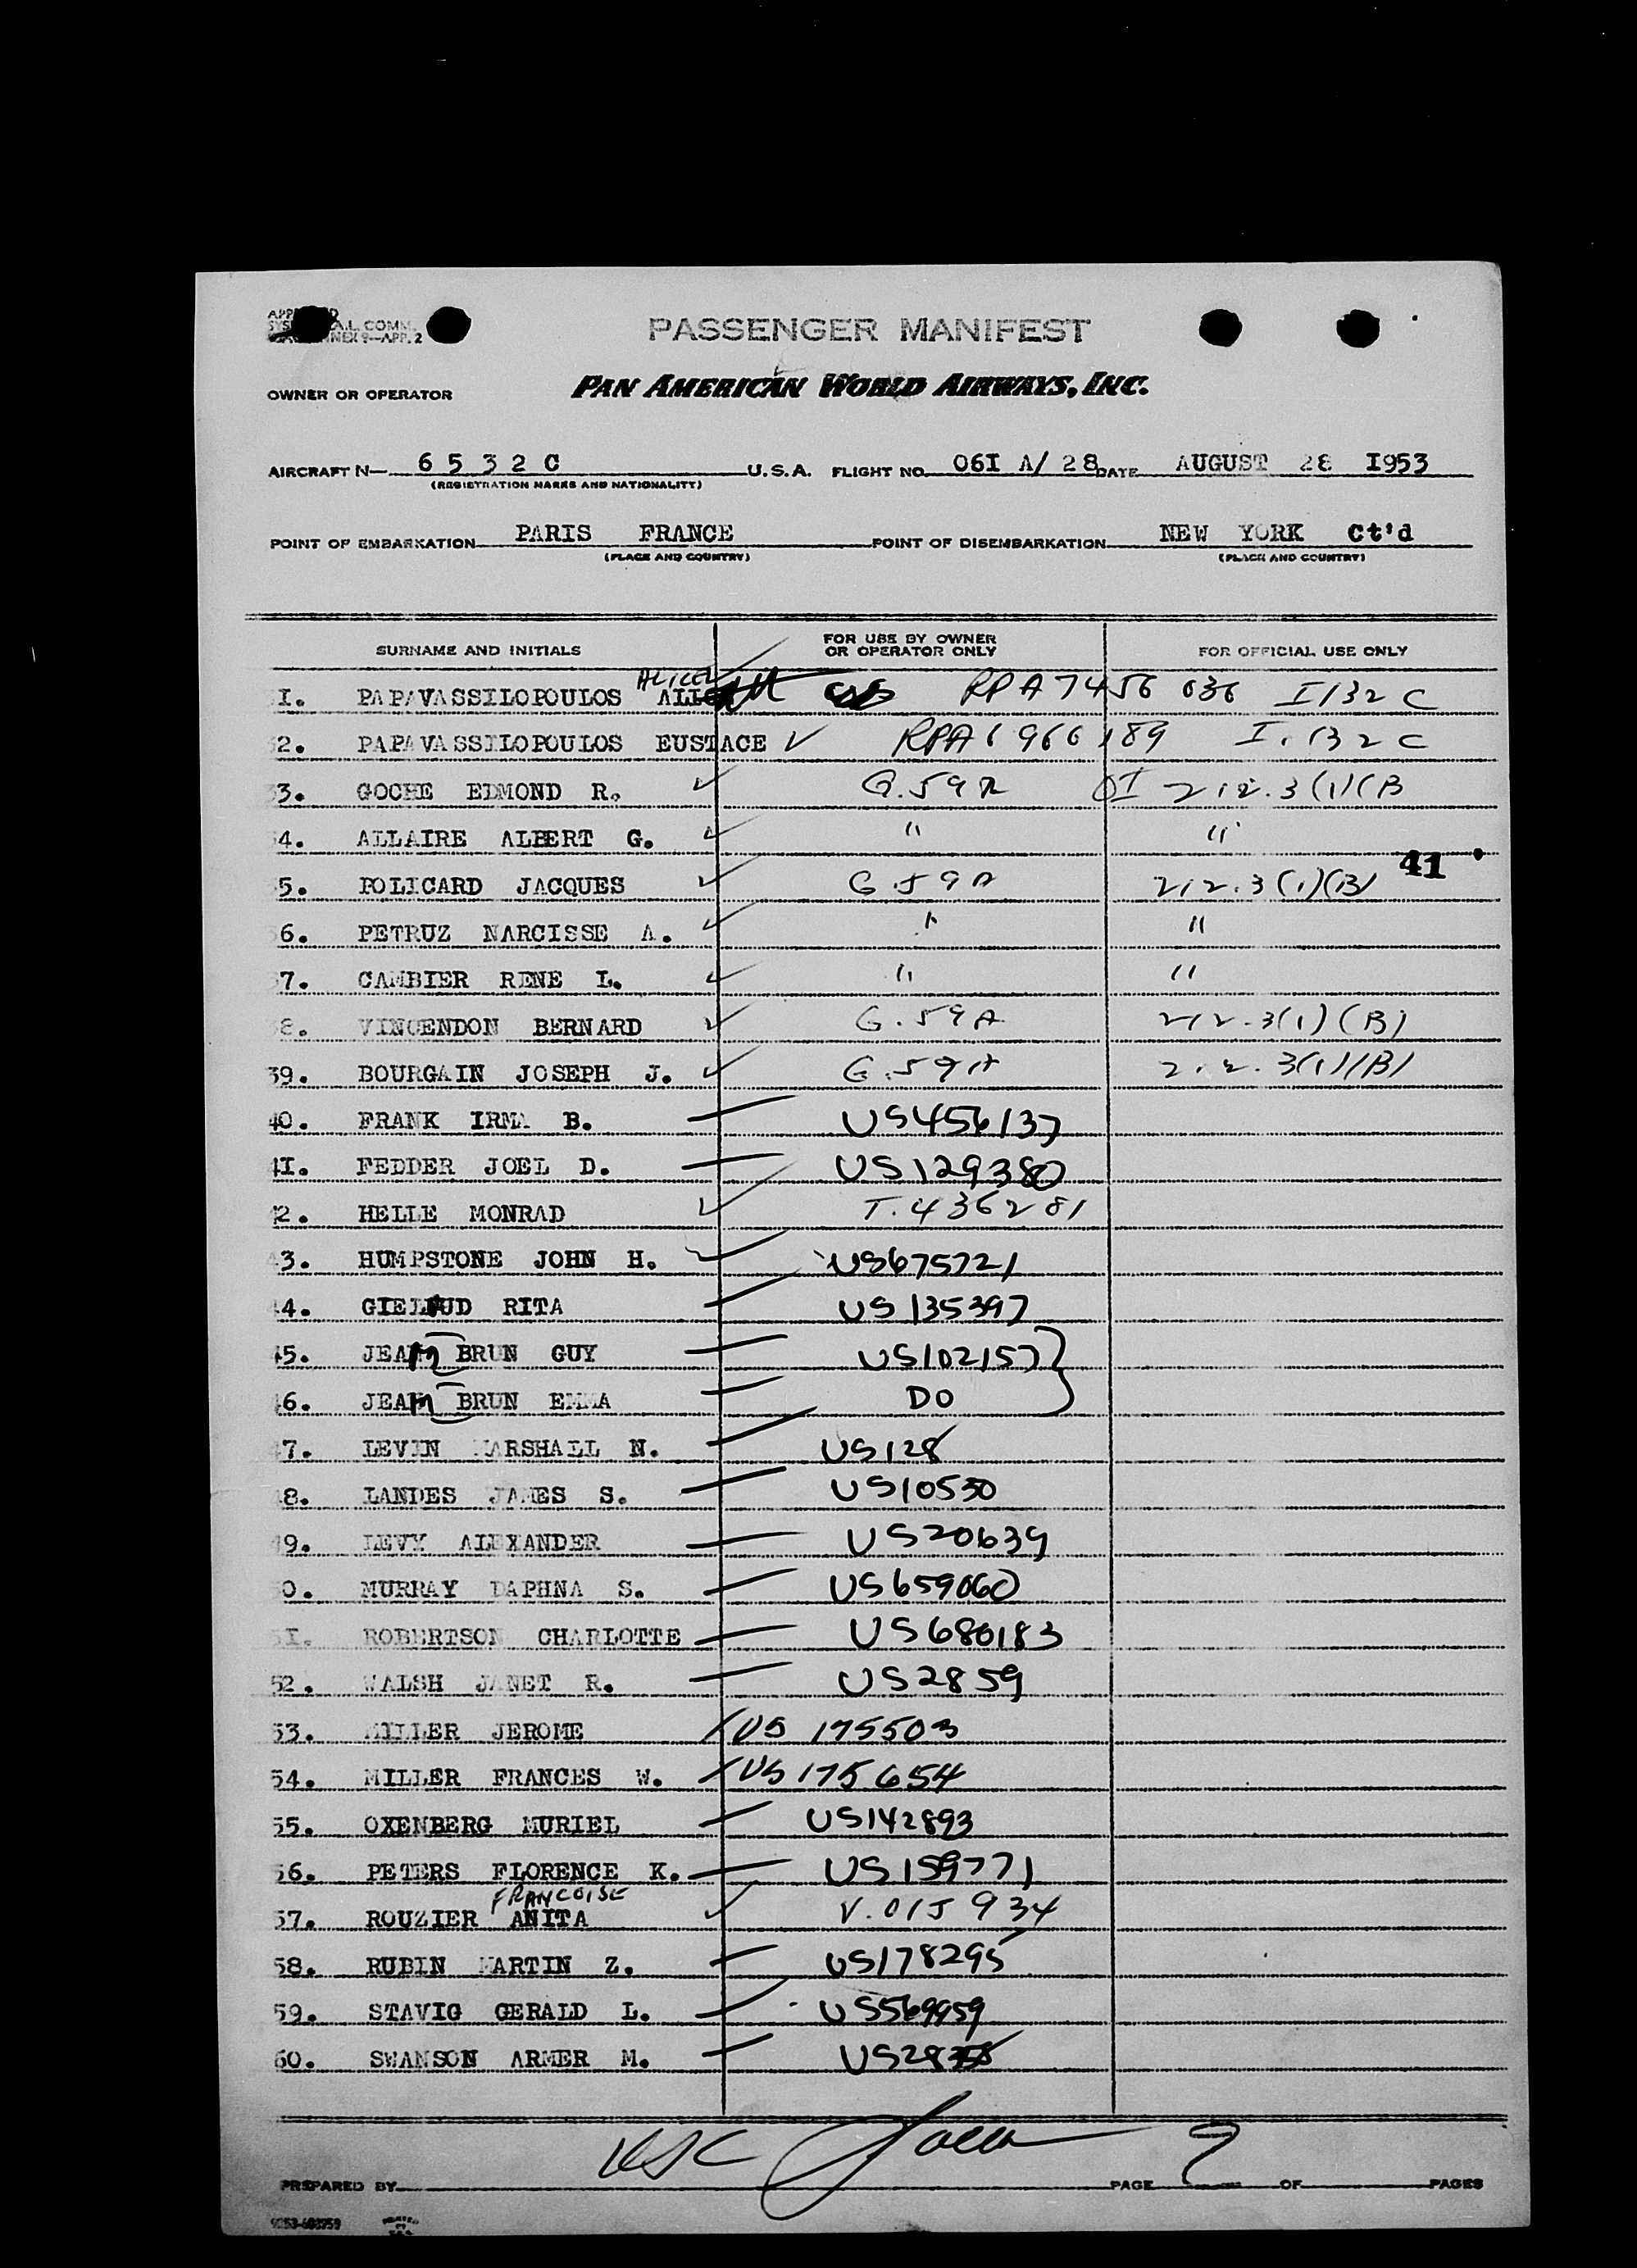 PASSENGER MANIFEST
OWNER OR OPERATOR PAN AMERICAN WORLD AIRWAYS, INC.
AIRCRAFT N— 6 5 3 2 C U.S.A. FLIGHT NO. 06I A/ 28 DATE AUGUST 28 I953
(REGISTRATION MARKS AND NATIONALITY)
POINT OF EMBARKATION PARIS FRANCE POINT OF DISEMBARKATION NEW YORK Ct'd
(PLACE AND COUNTRY) (PLACE AND COUNTRY)
SURNAME AND INITIALS FOR USE BY OWNER OR OPERATOR ONLY FOR OFFICIAL USE ONLY
ALICE
1. PAPAVASSILOPOULOS RPA 7456 036 I132C
2. PAPAVASSILOPOULOS EUSTACE ✓ RPA 6966189 I.132C
3. GOCHE EDMOND R. ✓ G.59A OI 212.3(1)(B
4. ALLAIRE ALBERT G. ✓ " "
41
5. POLICARD JACQUES ✓ G.59A 212.3(1)(B)
6. PETRUZ NARCISSE A. ✓ " "
7. CAMBIER RENE L. ✓ " "
8. VINCENDON BERNARD ✓ G.59A 212.3(1)(B)
39. BOURGAIN JOSEPH J. ✓ G.59A 212.3(1)(B)
40. FRANK IRMA B. US456137
4I. FEDDER JOEL D. US129380
2. HELLE MONRAD ✓ T.436281
3. HUMPSTONE JOHN H. US675721
4. GIELAUD RITA US135397
45. JEAN BRUN GUY US102157
6. JEAN BRUN EMMA DO
7. LEVIN MARSHALL N. US128
8. LANDES JAMES S. US10530
9. LEVY ALEXANDER US20639
0. MURRAY DAPHNA S. US659060
5I. ROBERTSON CHARLOTTE US680183
52. WALSH JANET R. US2859
53. MILLER JEROME US 175503
54. MILLER FRANCES W. US 175654
55. OXENBERG MURIEL US142893
56. PETERS FLORENCE K. US159771
FRANCOISE
57. ROUZIER ANITA ✓ V.015934
58. RUBIN MARTIN Z. US178295
59. STAVIG GERALD L. US569959
60. SWANSON ARMER M.
PREPARED BY PAGE OF PAGES